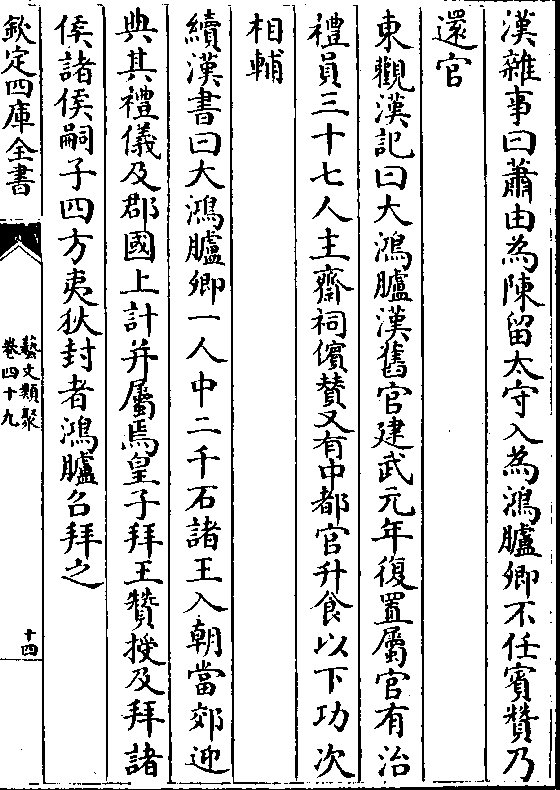 漢雜事曰蕭由為陳留太守入為鴻臚卿不任賓贊乃
還官
東觀漢記曰大鴻臚漢舊官建武元年復置屬官有治
禮員三十七人主齋祠儐贊又有中都官升食以下功次
相輔
續漢書曰大鴻臚卿一人中二千石諸王入朝當郊迎
典其禮儀及郡國上計并屬焉皇子拜王贊授及拜諸
侯諸侯嗣子四方夷狄封者鴻臚召拜之
欽定四庫全書
藝文類聚
卷四十九
十四